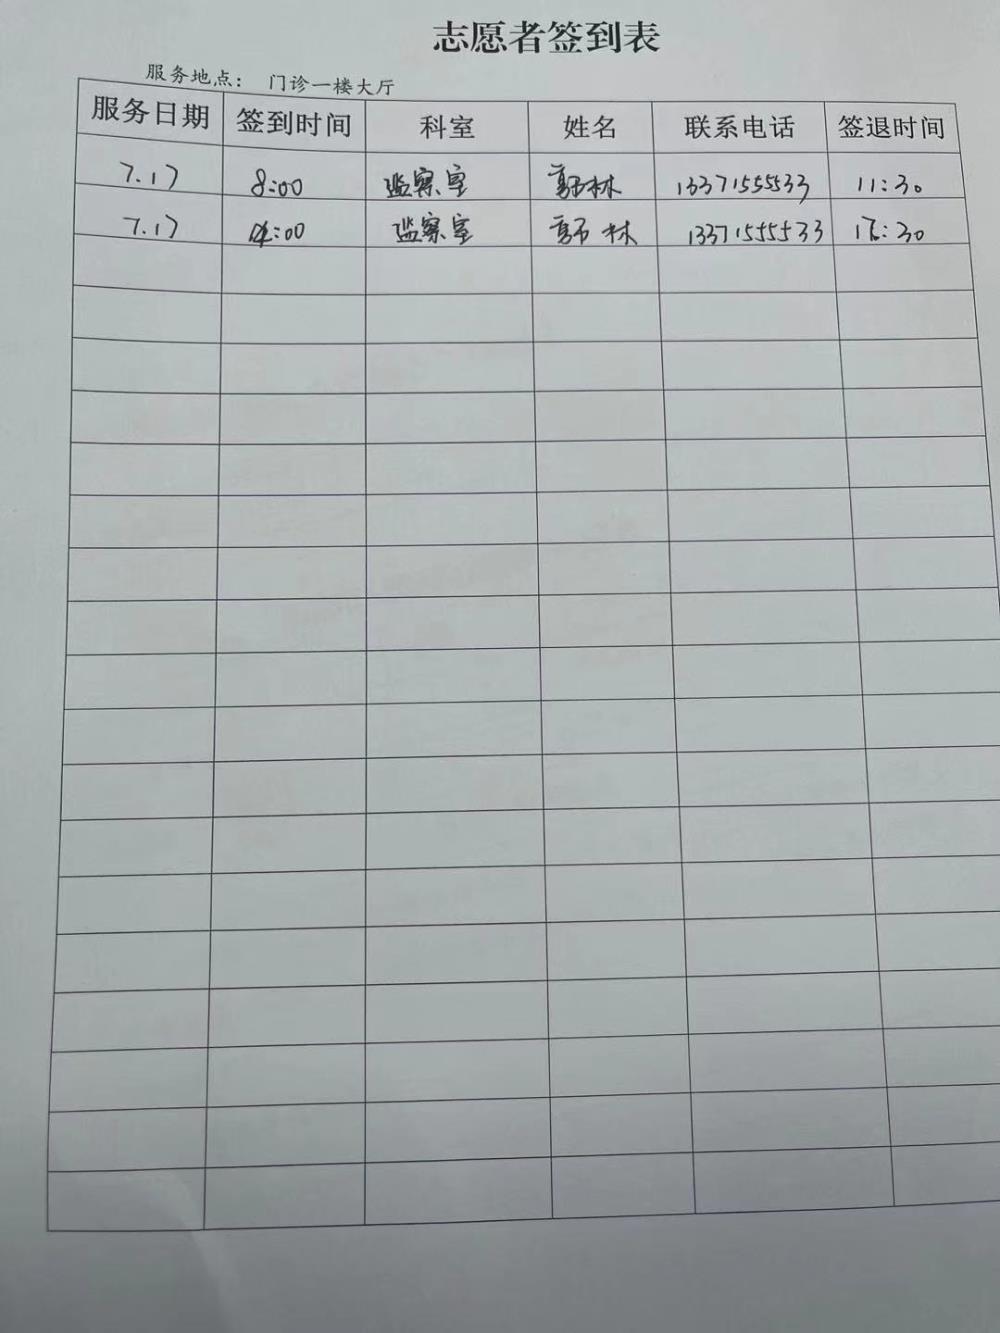 志愿者签到表
服务地点： 门诊一楼大厅
服务日期 签到时间 科室 姓名 联系电话 签退时间
7.17 8:00 监察室 郭林 13371555533 11:30
7.17 14:00 监察室 郭林 13371555533 17:30